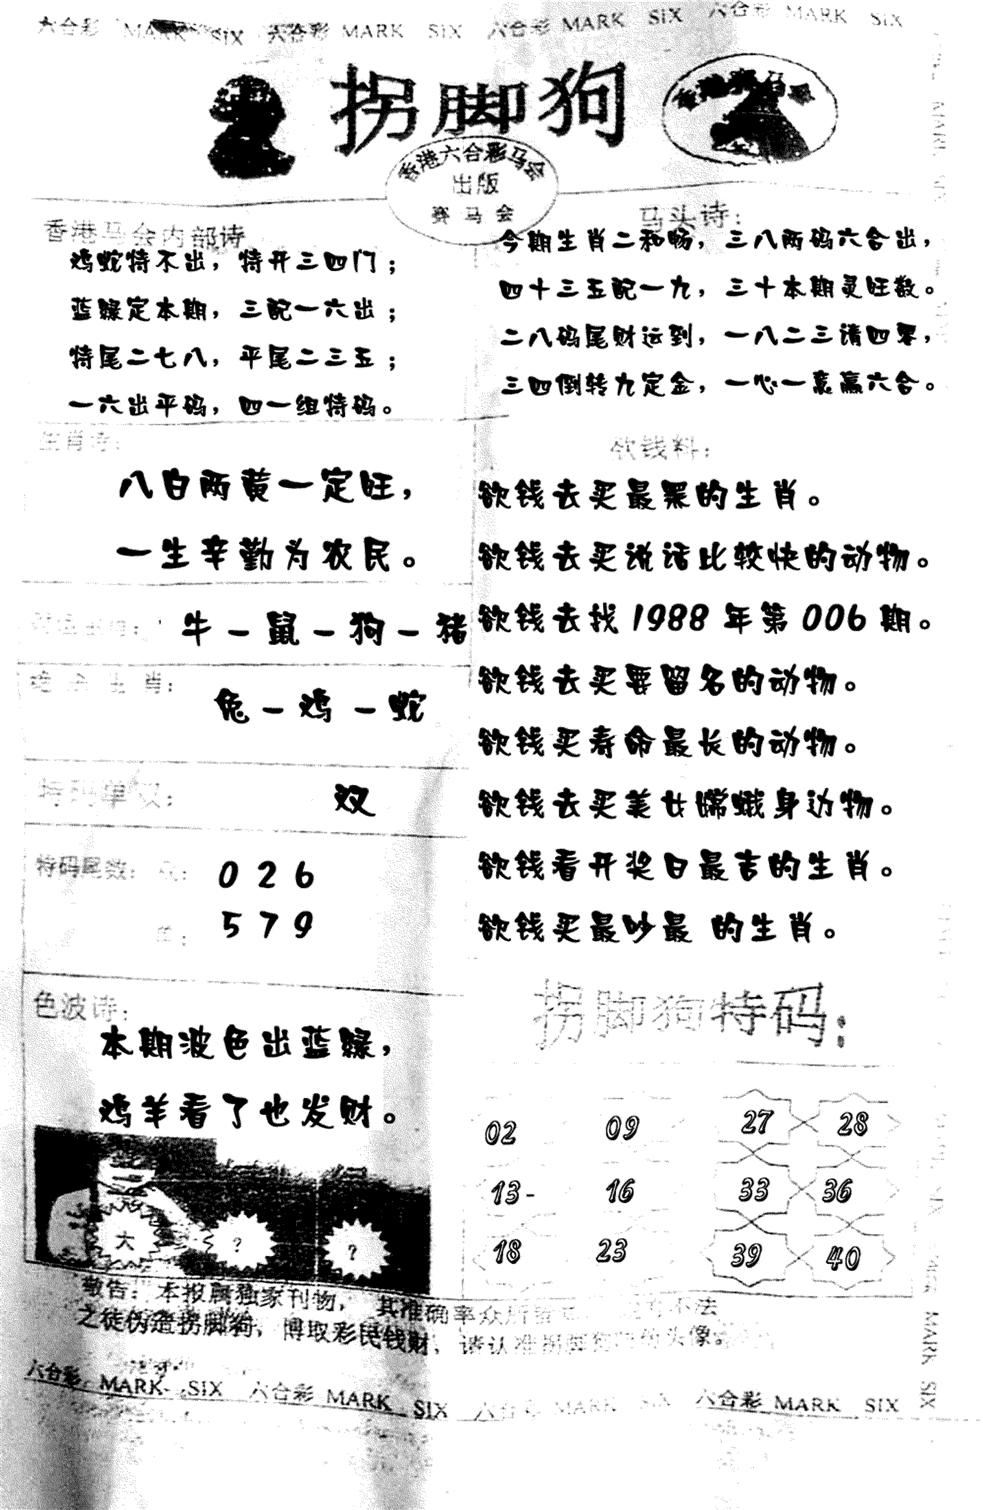 六合彩 MARK SIX 六合彩 MARK SIX 六合彩 MARK SIX 六合彩 MARK SIX
拐脚狗
香港赛马会
香港六合彩马会
出版
赛马会
香港马会内部诗
鸡蛇特不出，特开三四门；
蓝绿定本期，三配一六出；
特尾二七八，平尾二三五；
一六出平码，四一组特码。
马头诗：
今期生肖二和畅，三八两码六合出，
四十三五配一九，三十本期灵旺数。
二八码尾财运到，一八二三请四零，
三四倒转九定金，一心一意赢六合。
生肖诗：
八白两黄一定旺，
一生辛勤为农民。
牛－鼠－狗－猪
绝杀生肖：
兔－鸡－蛇
特码单双：
双
特码尾数：双：
0 2 6
单：
5 7 9
色波诗：
本期波色出蓝绿，
鸡羊看了也发财。
大 ? ?
欲钱料：
欲钱去买最黑的生肖。
欲钱去买说话比较快的动物。
欲钱去找1988年第006期。
欲钱去买要留名的动物。
欲钱买寿命最长的动物。
欲钱去买美女嫦娥身边物。
欲钱看开奖日最吉的生肖。
欲钱买最吵最 的生肖。
拐脚狗特码：
02 09 27 28
13- 16 33 36
18 23 39 40
敬告：本报属独家刊物，其准确率众所 不法
之徒伪造拐脚狗，博取彩民钱财，请认准拐脚狗 头像。
六合彩 MARK SIX 六合彩 MARK SIX 六合彩 MARK SIX 六合彩 MARK SIX
MARK SIX